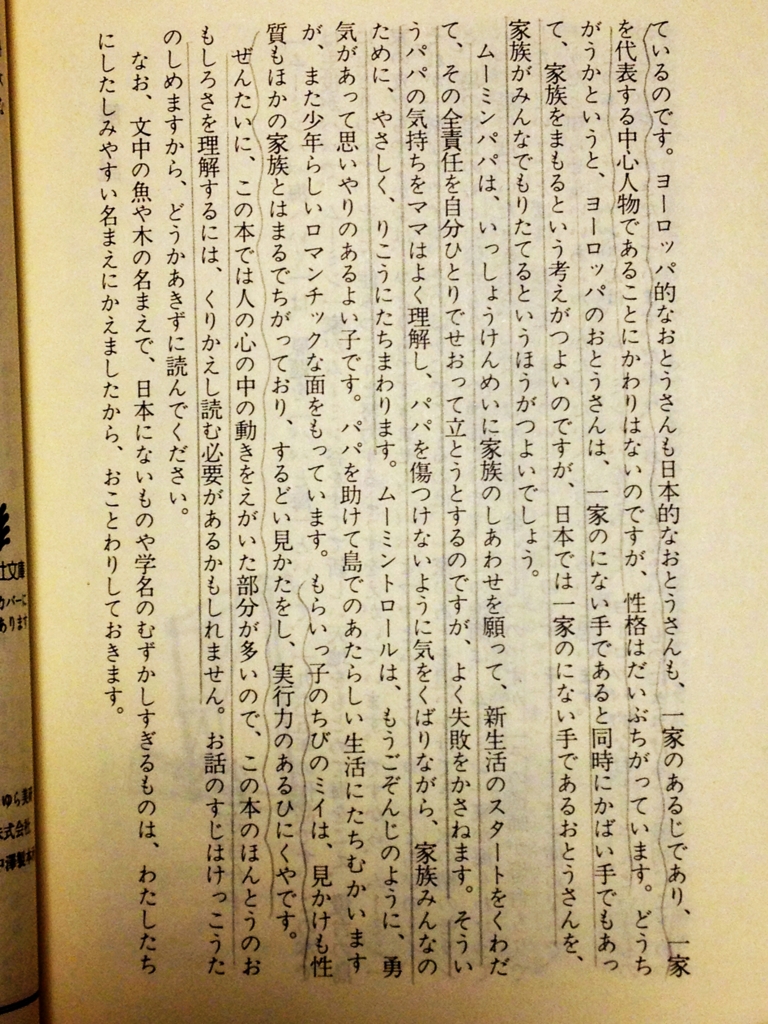 ているのです。ヨーロッパ的なおとうさんも日本的なおとうさんも、一家のあるじであり、一家
を代表する中心人物であることにかわりはないのですが、性格はだいぶちがっています。どうち
がうかというと、ヨーロッパのおとうさんは、一家のにない手であると同時にかばい手でもあっ
て、家族をまもるという考えがつよいのですが、日本では一家のにない手であるおとうさんを、
家族がみんなでもりたてるというほうがつよいでしょう。
ムーミンパパは、いっしょうけんめいに家族のしあわせを願って、新生活のスタートをくわだ
て、その全責任を自分ひとりでせおって立とうとするのですが、よく失敗をかさねます。そうい
うパパの気持ちをママはよく理解し、パパを傷つけないように気をくばりながら、家族みんなの
ために、やさしく、りこうにたちまわります。ムーミントロールは、もうごぞんじのように、勇
気があって思いやりのあるよい子です。パパを助けて島でのあたらしい生活にたちむかいます
が、また少年らしいロマンチックな面をもっています。もらいっ子のちびのミイは、見かけも性
質もほかの家族とはまるでちがっており、するどい見かたをし、実行力のあるひにくやです。
ぜんたいに、この本では人の心の中の動きをえがいた部分が多いので、この本のほんとうのお
もしろさを理解するには、くりかえし読む必要があるかもしれません。お話のすじはけっこうた
のしめますから、どうかあきずに読んでください。
なお、文中の魚や木の名まえで、日本にないものや学名のむずかしすぎるものは、わたしたち
にしたしみやすい名まえにかえましたから、おことわりしておきます。
社文庫
カバーに
あります
ゆら美術
式会社